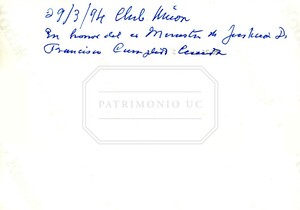 29/3/94 Club Union
En honor del ex Ministro de Justicia D.
Francisco Cumplido Cereceda
PATRIMONIO UC